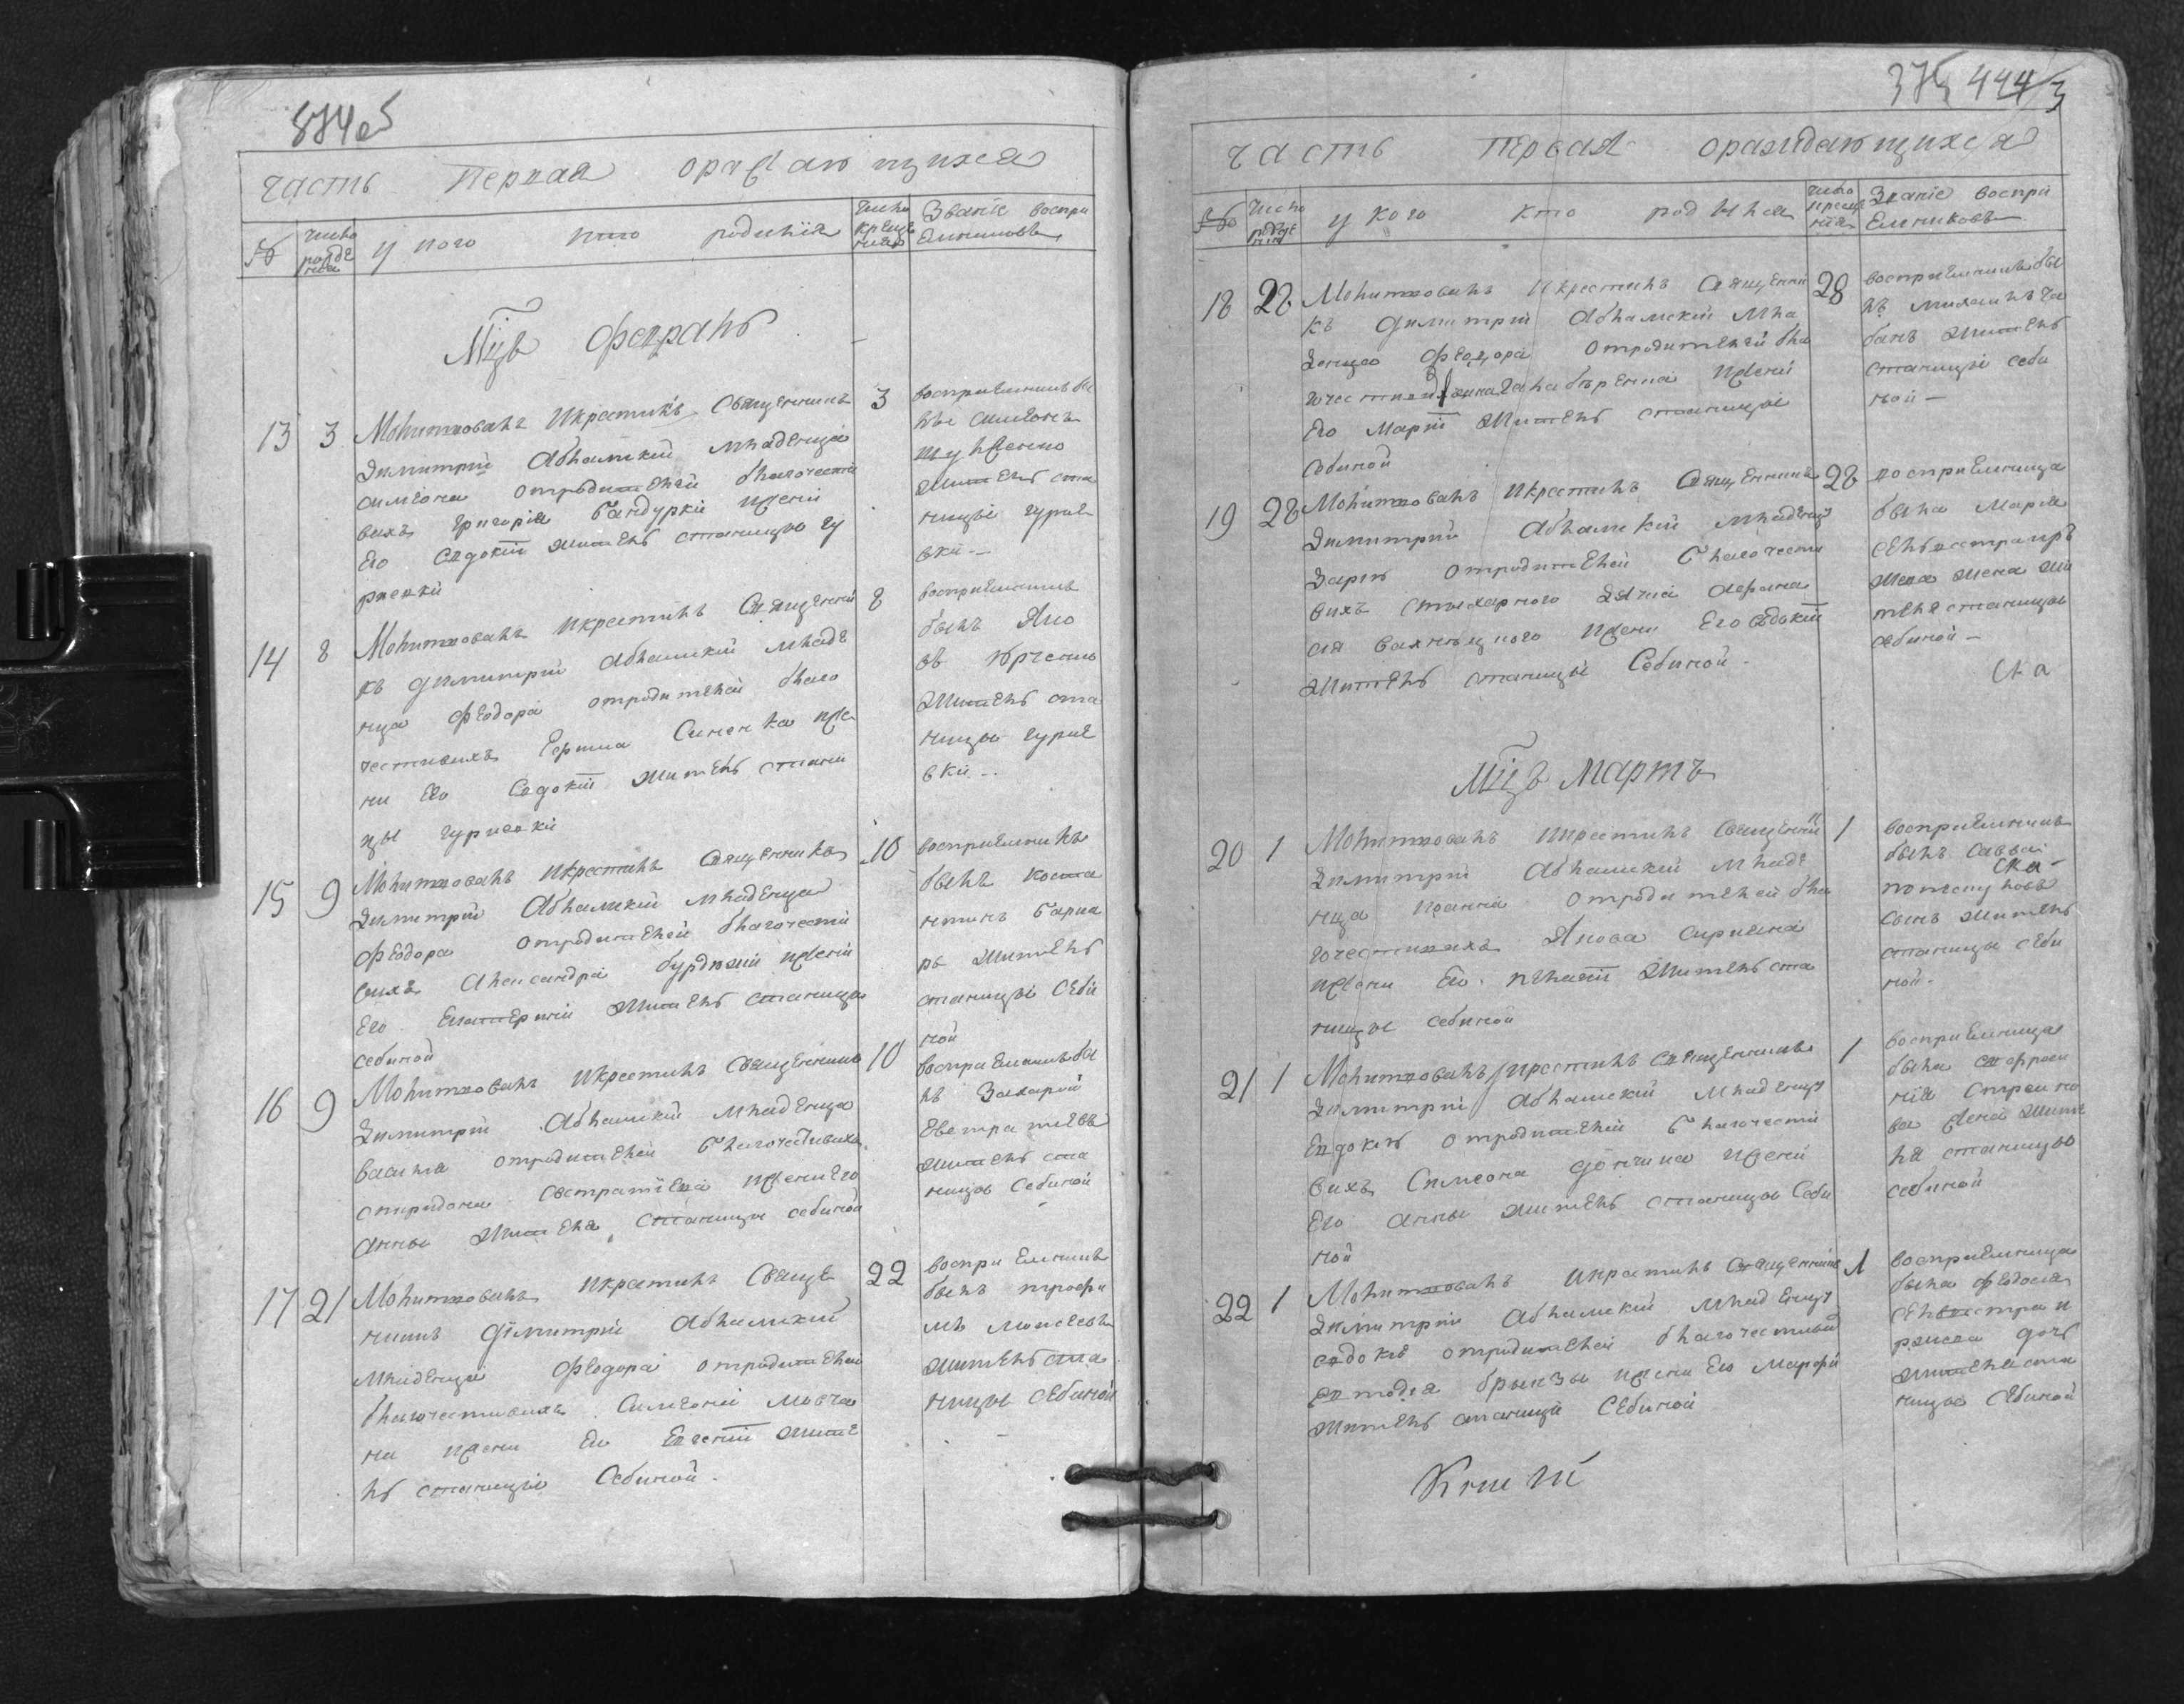 874об
часть Первая ораждающихся
№ число рожде нія у кого кто родился число креще нія Званіе воспри емниковъ
Мцъ Февраль
13 3 Молитвовалъ икрестилъ Священникъ 3
Димитрій Абламскій младенца
симеона отродителей благочести
выхъ Григорія Бандурки ижени
Его Евдокіи жители станицы гу
риевки
восприемникъ бы
лъ симеонъ
жители ста
ницы гурие
вки
14 8 Молитвовалъ икрестилъ Священни 8
къ Димитрій Абламскій младе
нца Феодора отродителей благо
честивыхъ Ефима Синенка иже
ни Его Евдокіи жители стани
цы гуриевки
восприемникъ
былъ Яко
въ
житель ста
ницы гурие
вки
15 9 Молитвовалъ икрестилъ Священникъ 10
Димитрій Абламскій младенца
Феодора отродителей благочести
выхъ Александра ижени
Его Екатерини жители станицы
себиной
восприемникъ
былъ конста
нтинъ
житель
станицы Себи
ной
16 9 Молитвовалъ икрестилъ Священникъ 10
Димитрій Абламскій младенца
василія отродителей благочестивыхъ
спиридона Евстратіева ижени его
Анны жители станицы себиной
восприемникъ бы
лъ Захарій
Евстратіевъ
житель ста
ницы Себиной
17 21 Молитвовалъ икрестилъ Свяще 22
нникъ Димитрій Абламскій
младенца Феодора отродителей
благочестивыхъ Симеона Мовча
на ижени Его Евгеніи жите
ль станицы Себиной
восприемникъ
былъ трофи
мъ Моисеевъ
житель ста
ницы Себиной
375 444/3
часть Первая ораждающихся
№ число рожде нія у кого кто родился число креще нія Званіе воспри емниковъ
18 28 Молитвовалъ икрестилъ Священни 28
къ Димитрій Абламскій мла
денца Феодора отродителей бла
гочестивихъ ижени
Его Маріи жители станицы
Себиной
восприемникъ бы
лъ михаилъ ча
банъ житель
станицы себи
ной
19 28 Молитвовалъ икрестилъ Священникъ 28
Димитрій Абламскій младенца
Дарію отродителей благочести
выхъ стихарного Дячка Афана
сия ижени Его Евдокіи
жители станицы Себиной
восприемница
была Мария
жена жи
теля станицы
себиной
ска
Мцъ Мартъ
20 1 Молитвовалъ икрестилъ Священникъ 1
Димитрій Абламскій младе
нца Иоанна отродителей бла
гочестивыхъ Якова
ижени Его Пелагіи жители ста
ницы себиной
восприемникъ
былъ Савва
ска
сынъ житель
станицы Себи
ной
21 1 Молитвовалъ икрестилъ Священникъ 1
Димитрій Абламскій младенцу
Евдокію отродителей благочести
выхъ Симеона ижени
Его Анны жители станицы Себи
ной
восприемница
была
жена жите
ля станицы
себиной
22 1 Молитвовалъ икрестилъ Священникъ 1
Димитрій Абламскій младенцу
Евдокію отродителей благочестивый
брынзы ижени Его Марфи
жители станици Себиной
восприемница
была Феодосия
дочь
жителя ста
ницы Себиной